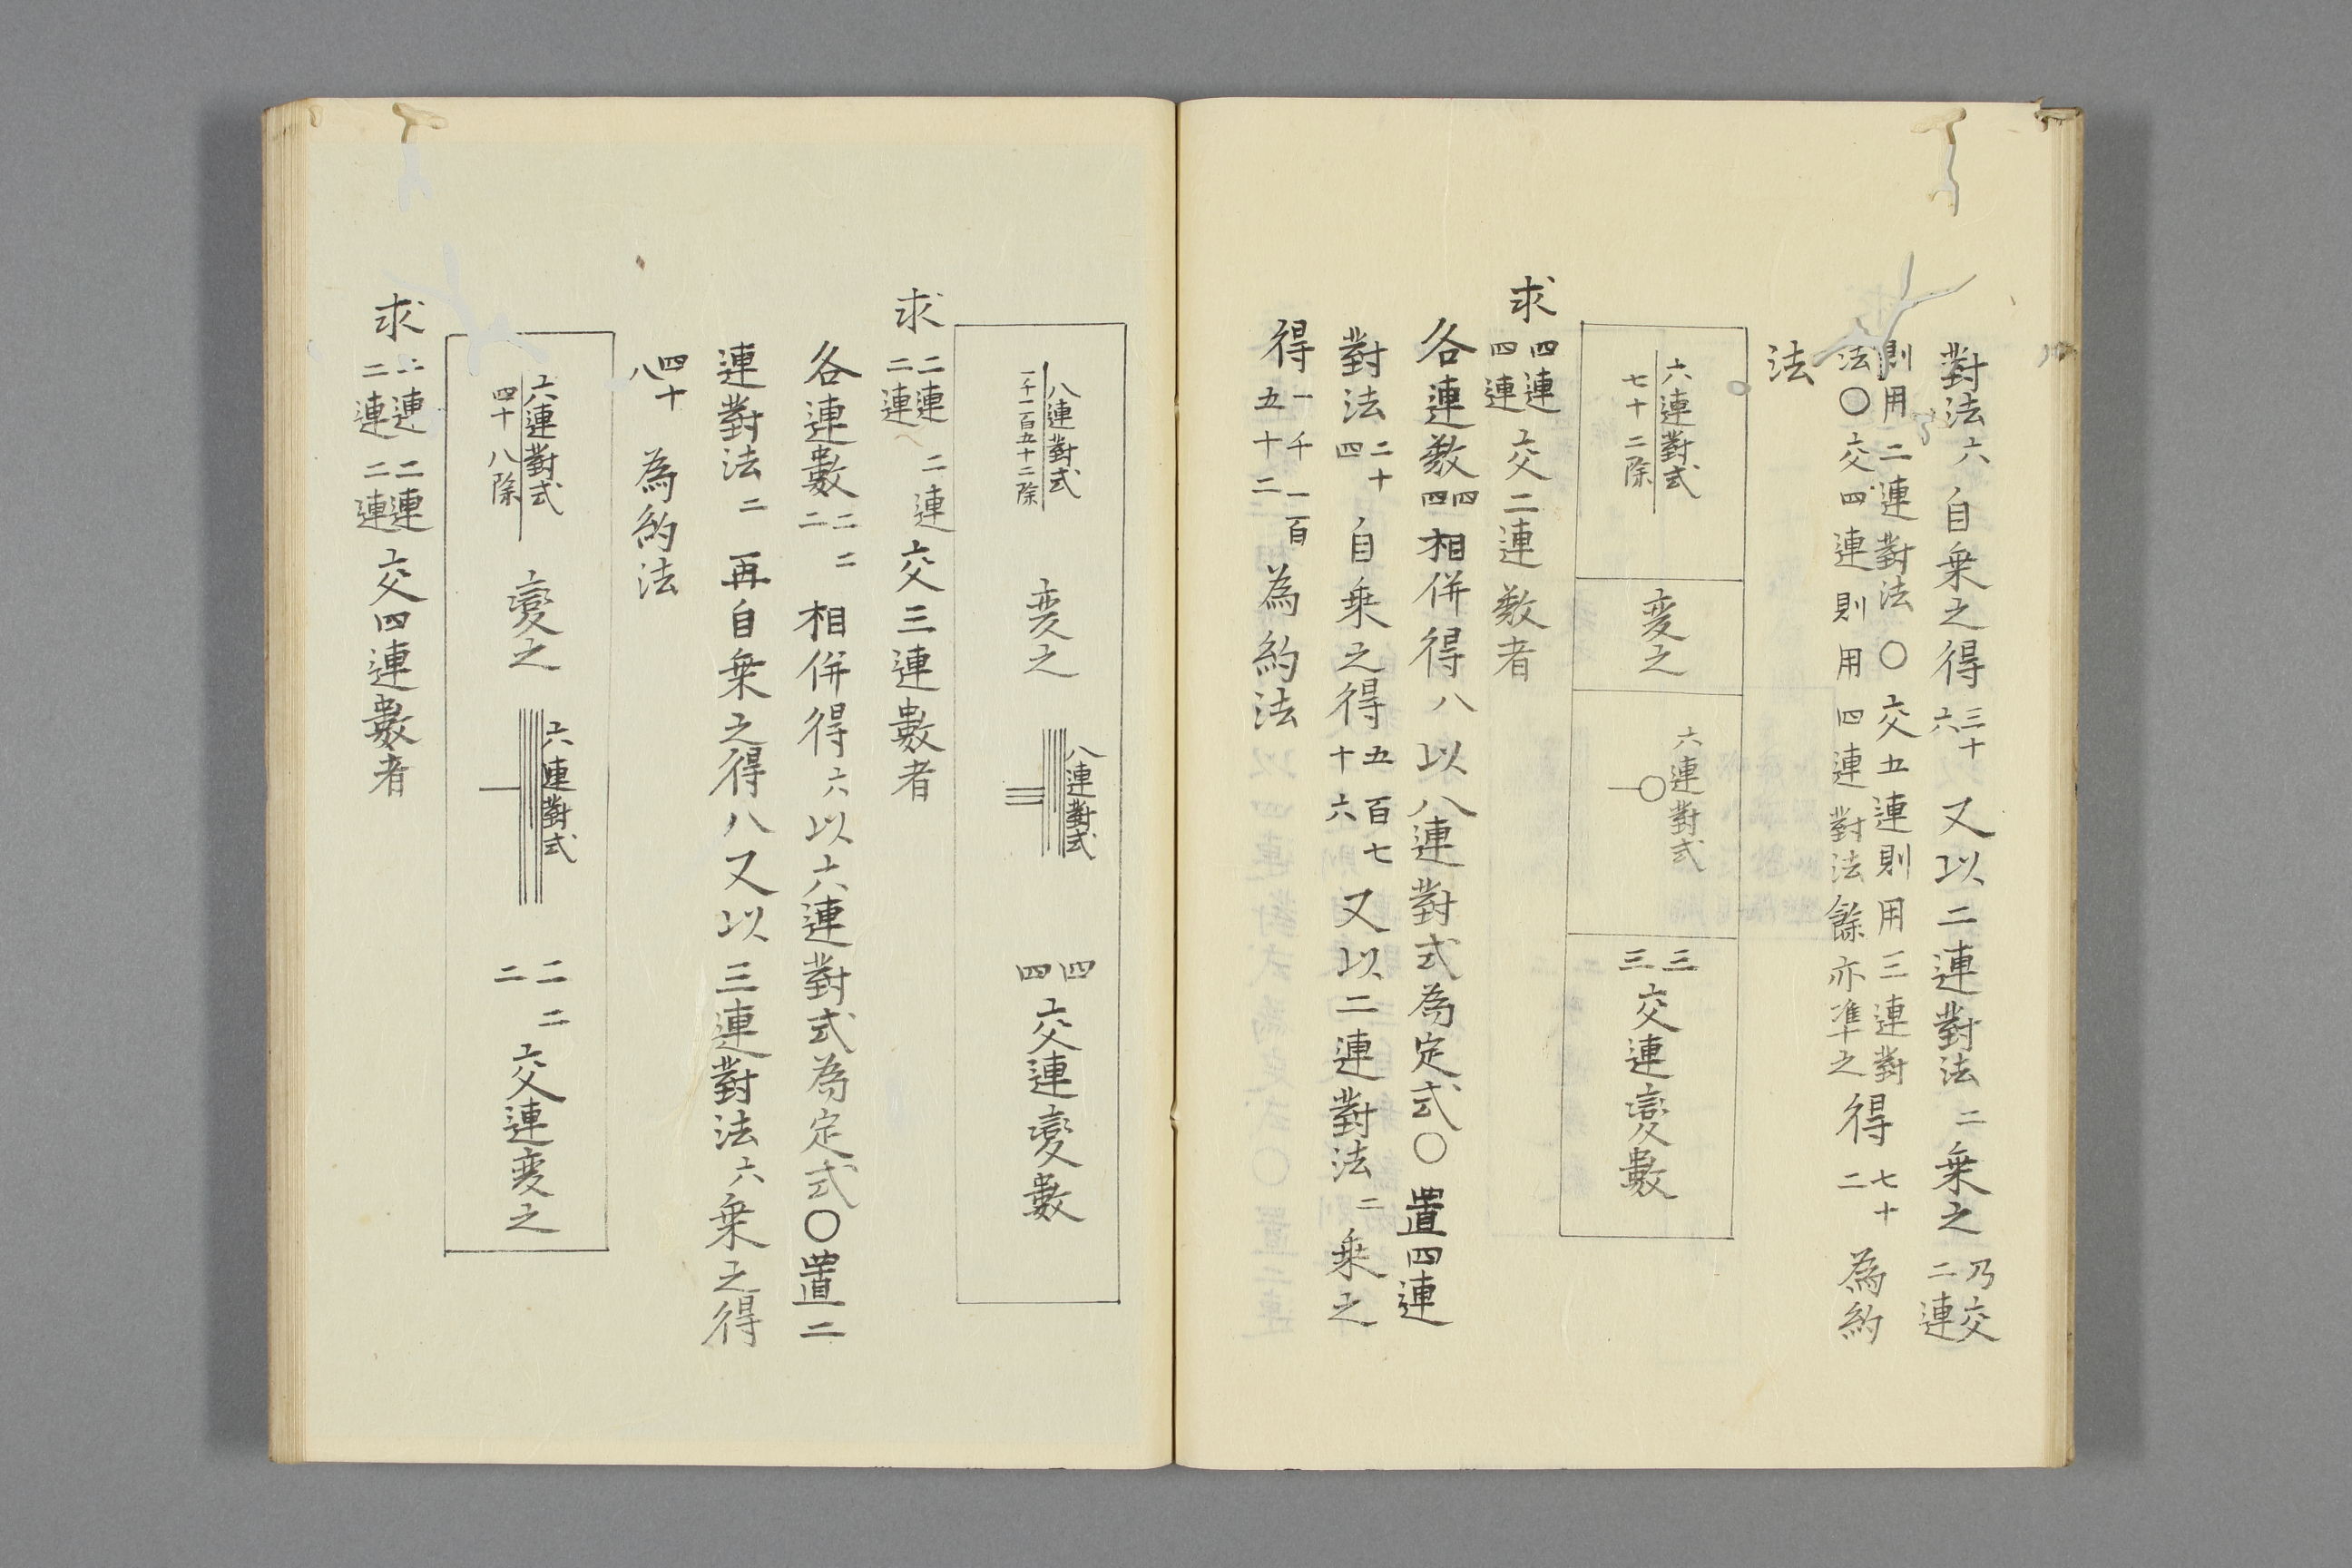 對法六自乗之得三十六又以二連對法二乗之乃交二連
則用二連對法〇交五連則用三連對
法〇交四連則用四連對法餘亦準之得七十二為約
法
六連對式
七十二除
変之
六連對式
三三交連變數
求四連四連交二連数者
各連数四四相併得八以八連對式為定式〇置四連
對法二十四自乗之得五百七十六又以二連對法二乗之
得一千一百五十二為約法
八連對式
一千一百五十二除
変之
八連對式
四四交連變數
求二連二連二連交三連數者
各連數二二二相併得六以六連對式為定式〇置二
連對法二再自乗之得八又以三連對法六乗之得
四十八為約法
六連對式
四十八除
變之
六連對式
二二二交連変之
求二連二連二連二連交四連數者